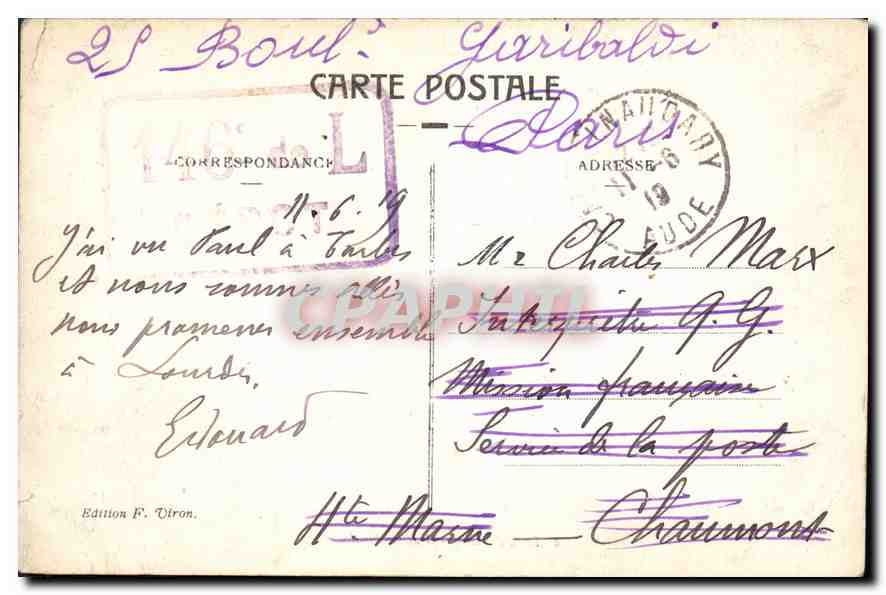 25 Boul.d Garibaldi
Paris
CARTE POSTALE
CORRESPONDANCE
ADRESSE
146e de L
DEPOT
NAUDARY
11-6
19
AUDE
11.6.19
J'ai vu Paul à Tarbes
et nous sommes allés
nous promener ensemble
à Lourdes.
Edouard
Mr Charles Marx
Interprète Q.G.
Mission française
Service de la poste
Chaumont
Hte Marne
CPAPHIL
Edition F. Viron.